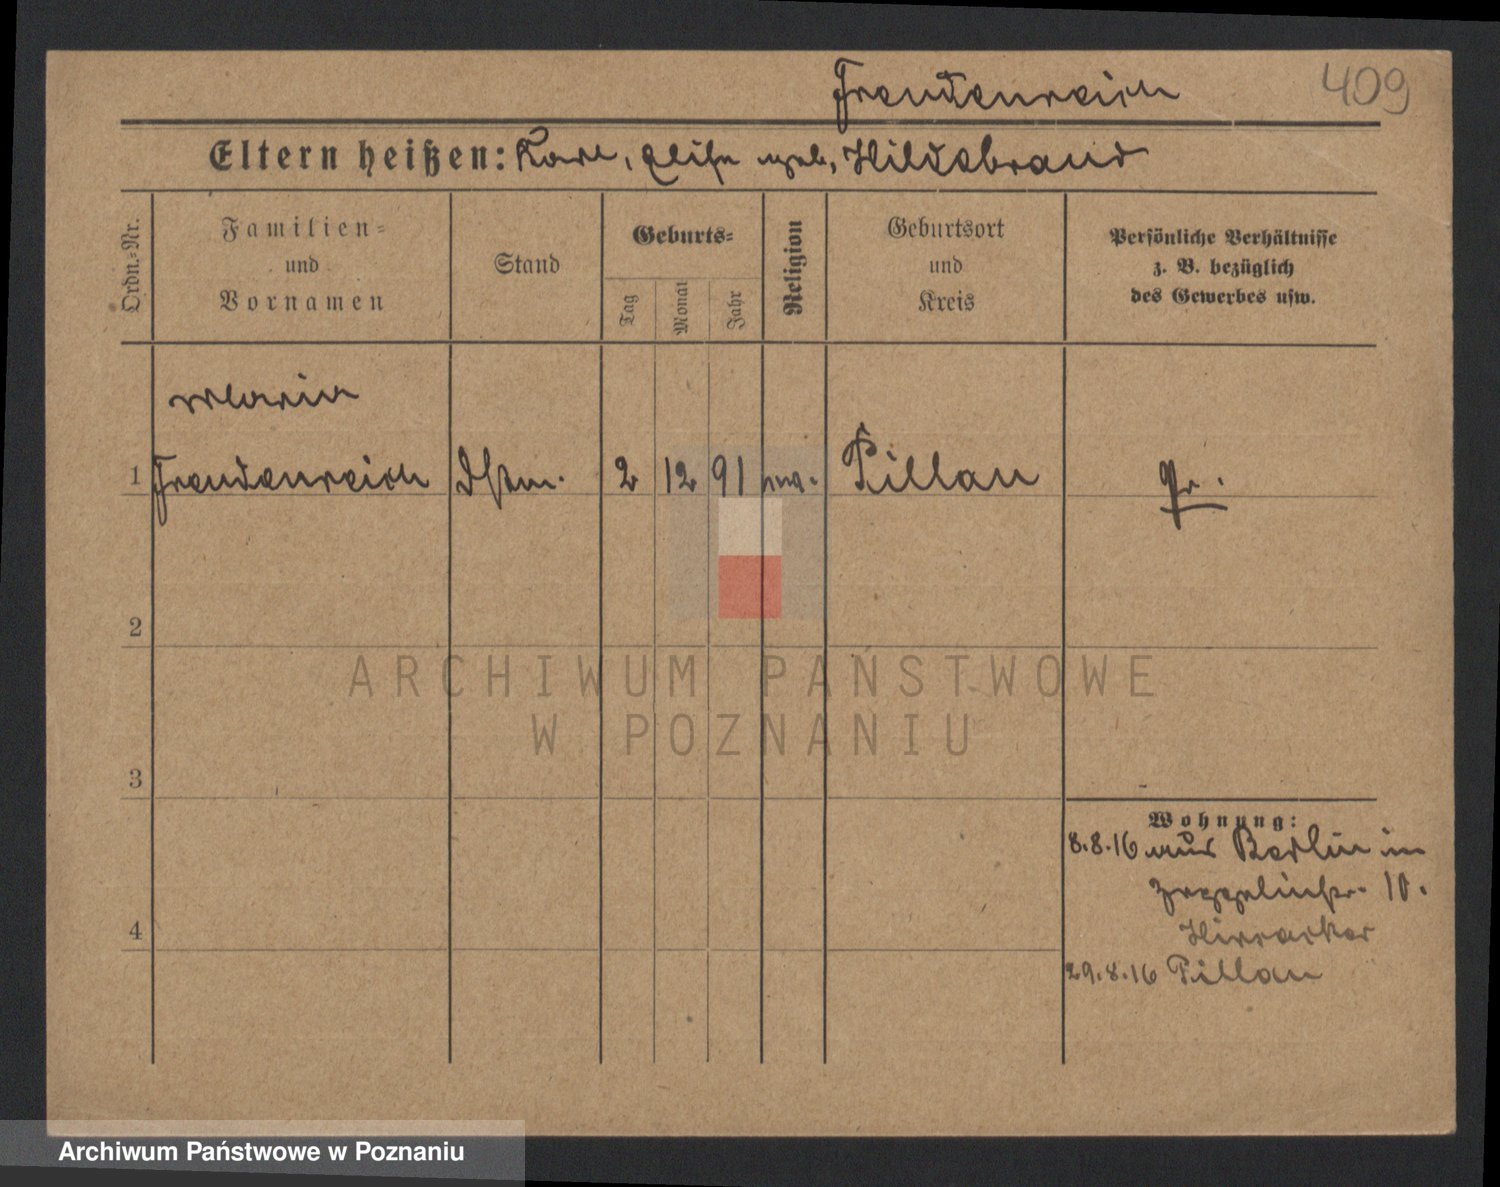 409
Freudenreich
Eltern heißen: Karl, Luise geb. Hildebrand
Ordn.-Nr.
Familien-
und
Vornamen
Stand
Geburts-
Tag
Monat
Jahr
Religion
Geburtsort
und
Kreis
Persönliche Verhältnisse
z. B. bezüglich
des Gewerbes usw.
Maria
1 Freudenreich 2 12 91 Pillau Pr.
2
3
4
Wohnung:
8.8.16 aus Berlin in
Zeppelinstr. 10.
29.8.16 Pillau
ARCHIWUM PAŃSTWOWE
W POZNANIU
Archiwum Państwowe w Poznaniu